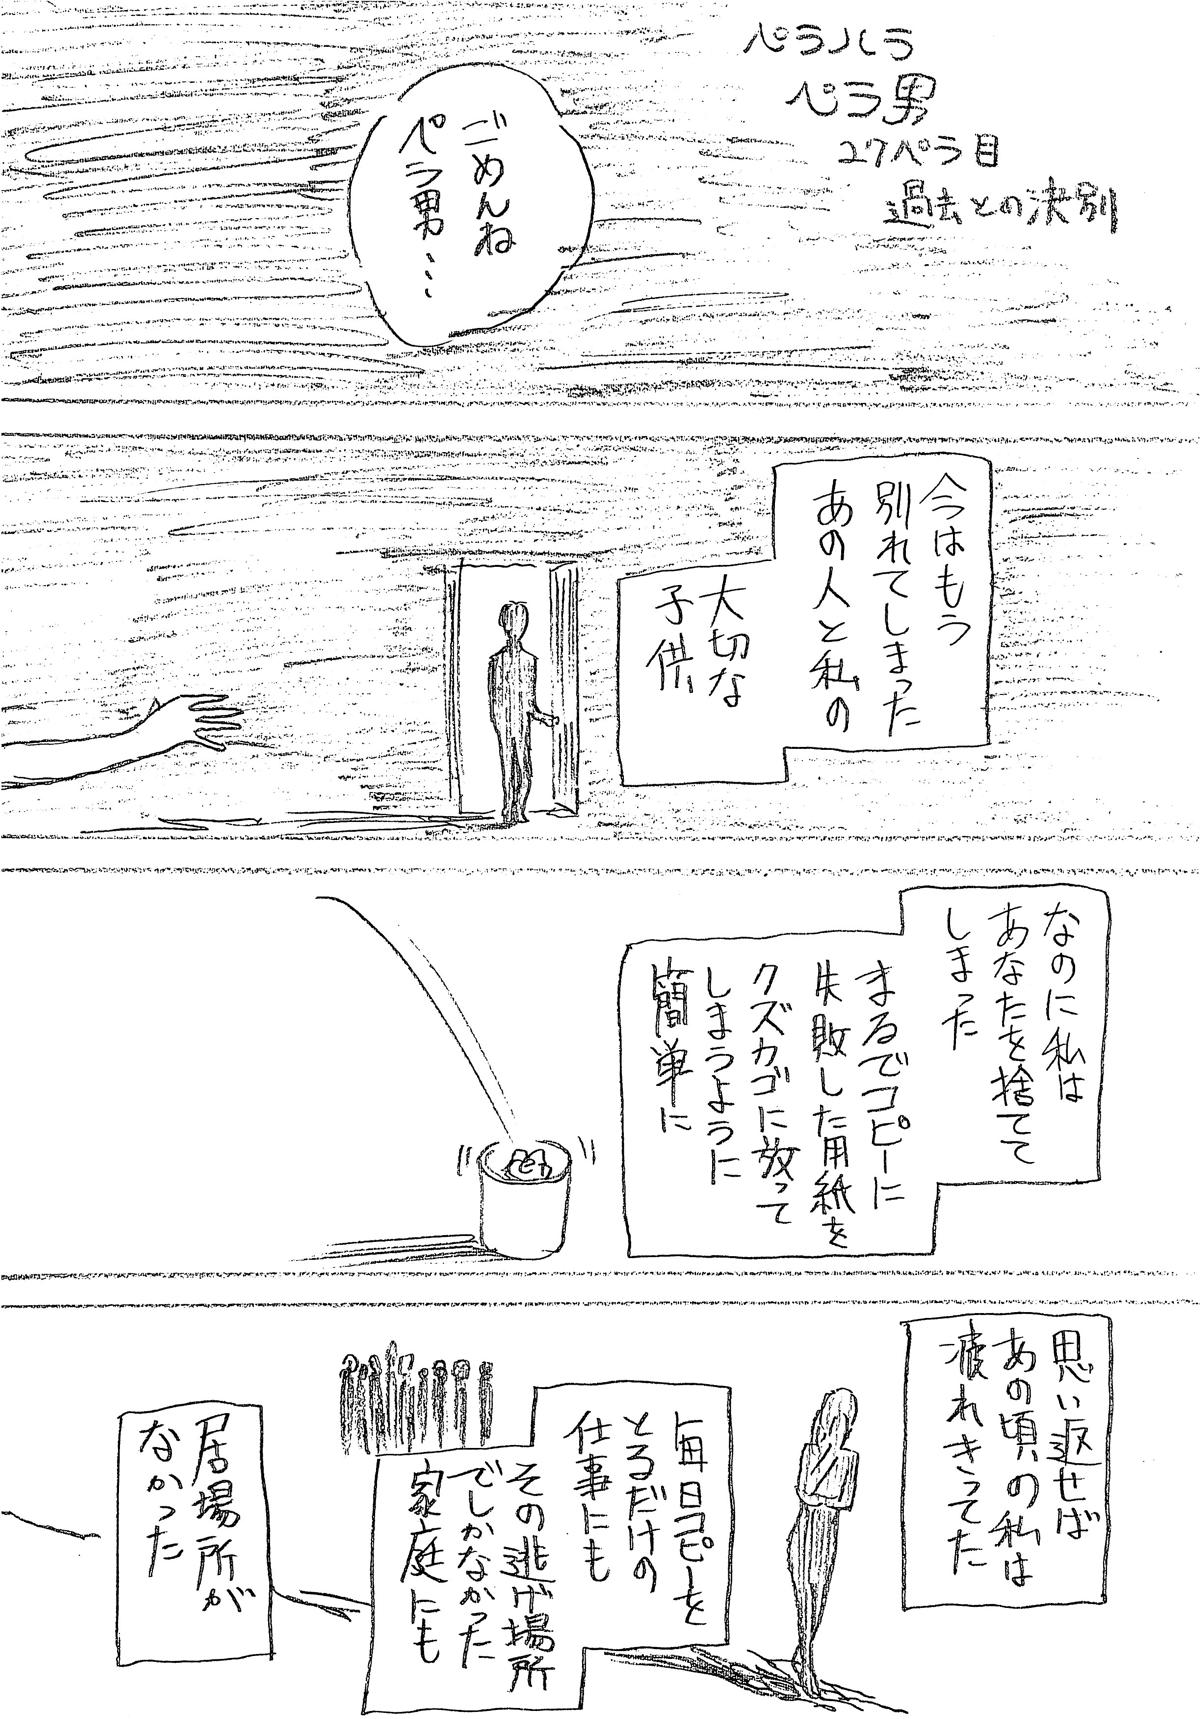 ペラハラ
ペラ男
27ペラ目
過去との決別
ごめんね
ペラ男…
今はもう
別れてしまった
あの人と私の
大切な
子供
なのに私は
あなたを捨てて
しまった
まるでコピーに
失敗した用紙を
クズカゴに放って
しまうように
簡単に
思い返せば
あの頃の私は
疲れきってた
毎日コピーを
とるだけの
仕事にも
その逃げ場所
でしかなかった
家庭にも
居場所が
なかった